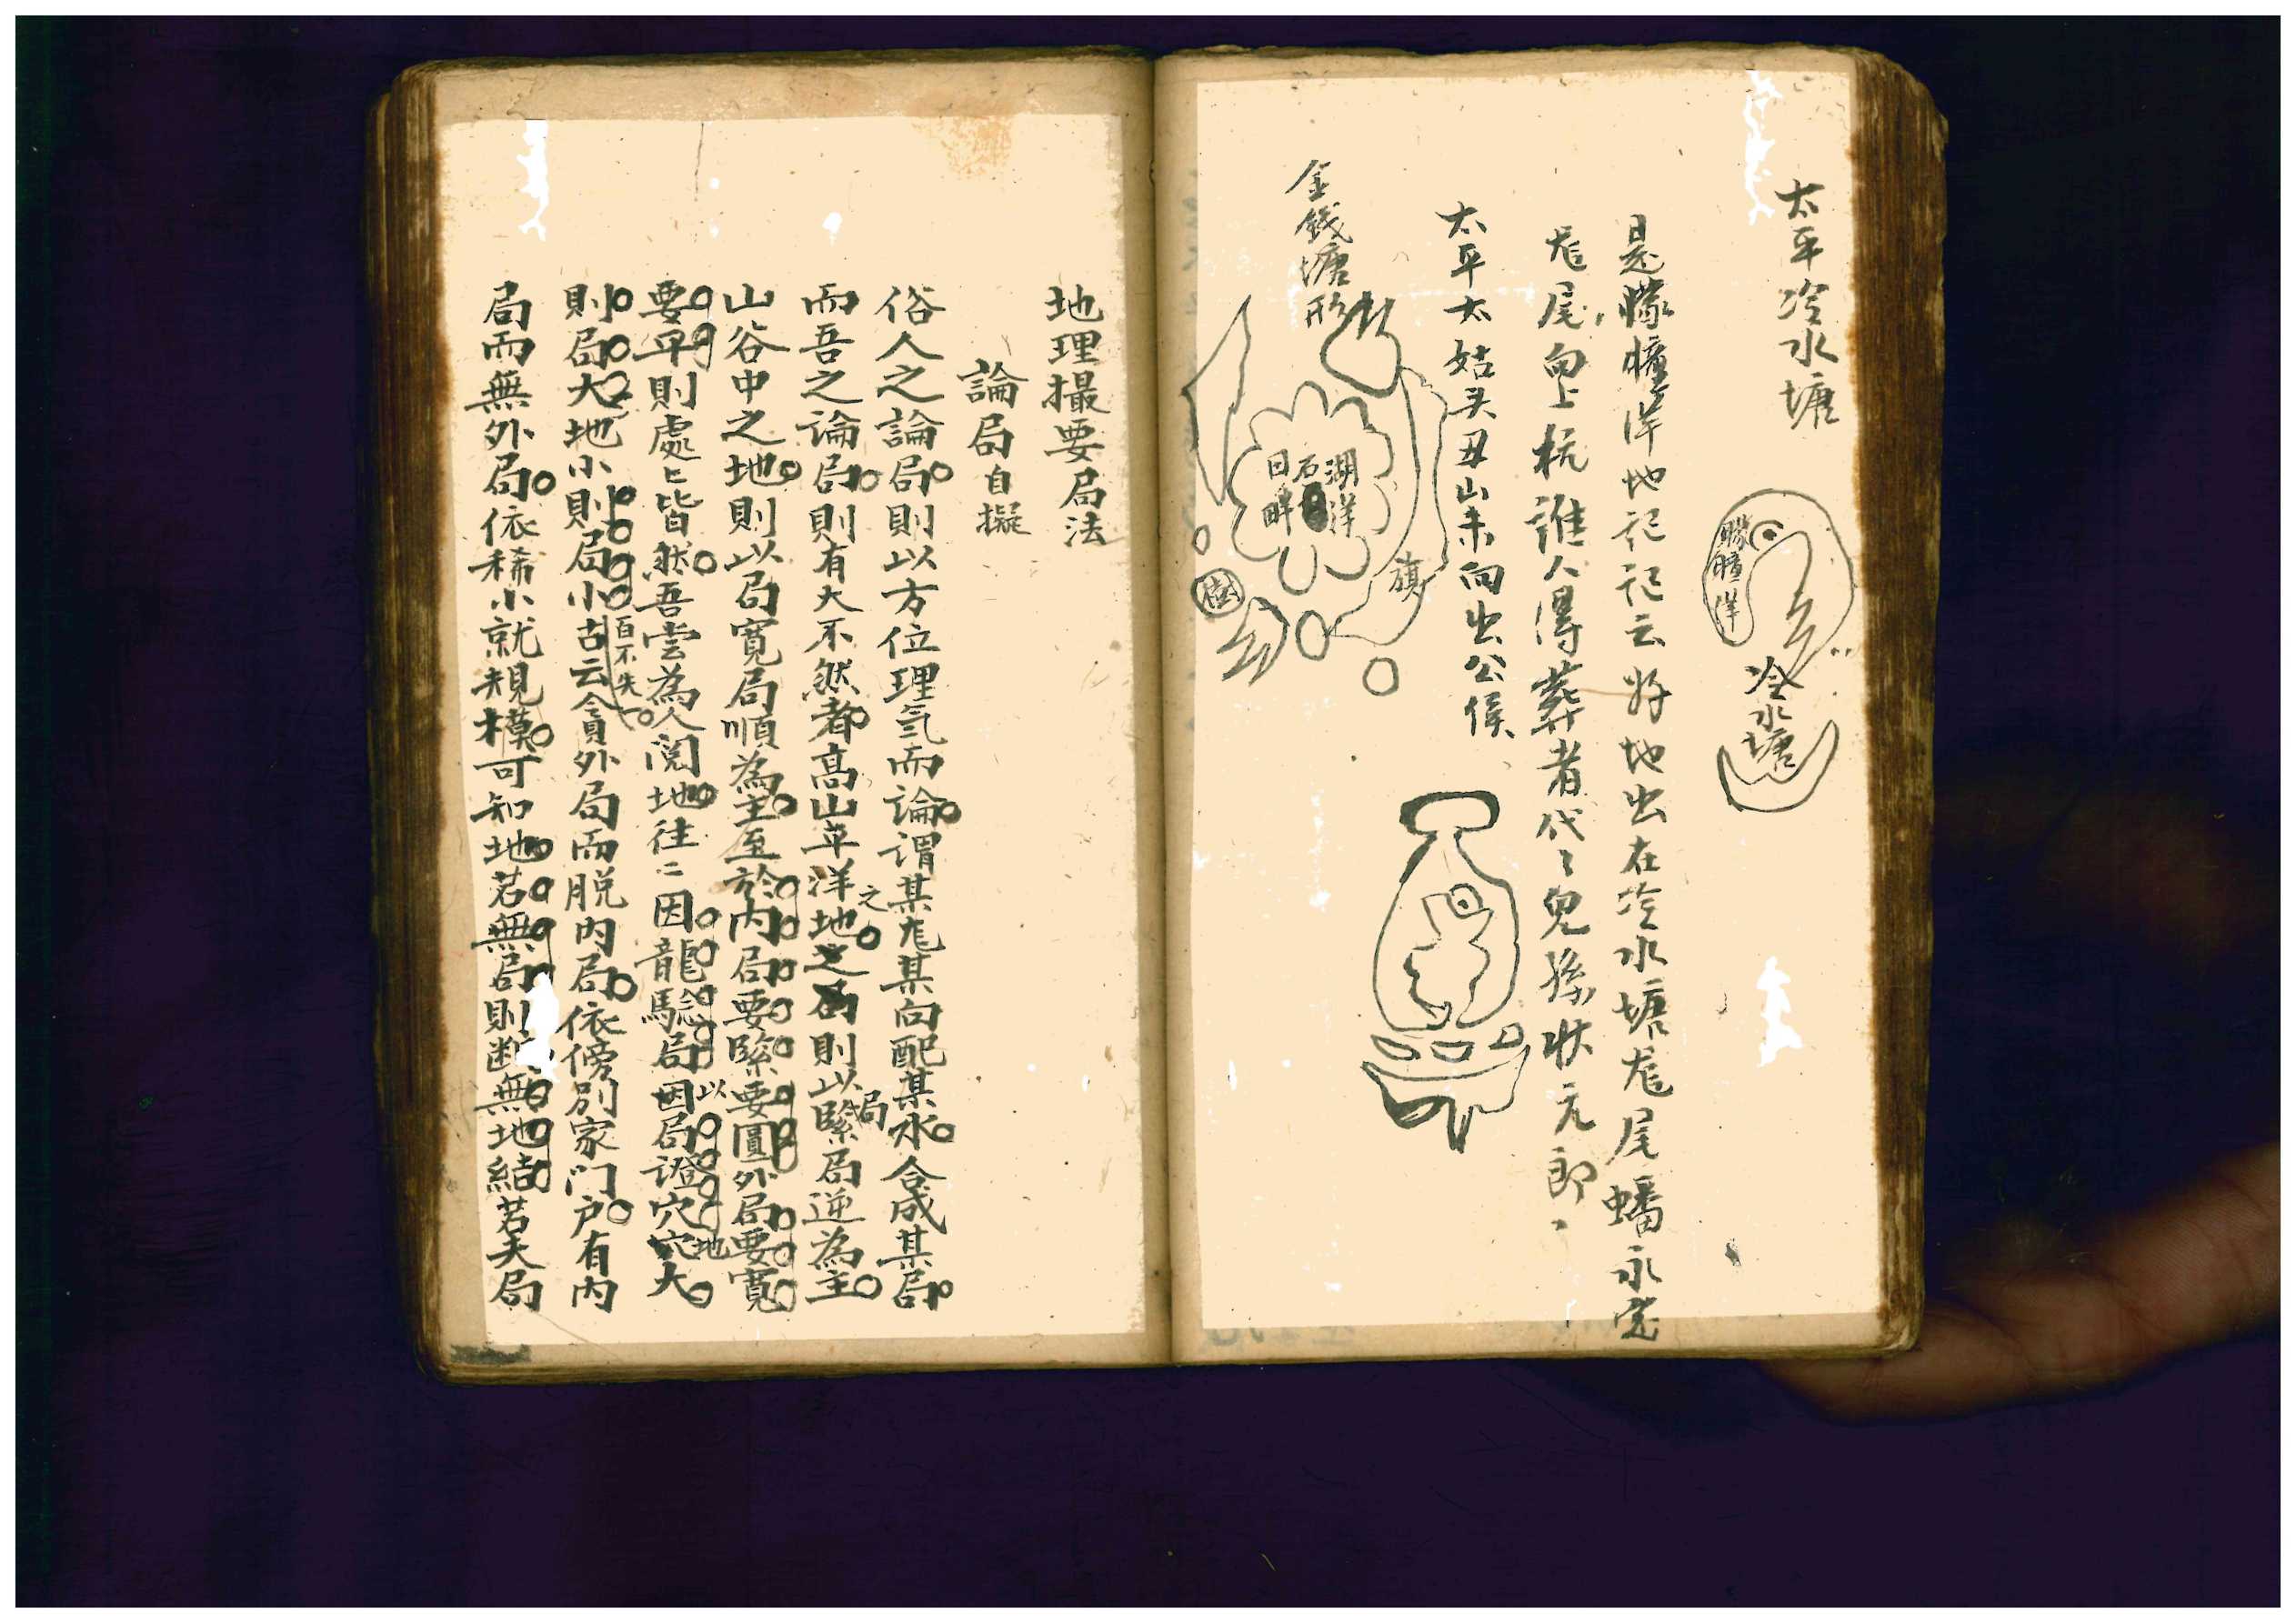 太平冷水塘
朦朣洋
冷水塘
是朦朣洋地記記云好地出在冷水塘尨尾蟠
尨尾向上杭誰人得葬者代々兒孫狀元郎
太平太姑头丑山未向出公侯
金錢塘形
湖洋
石
日畔
旗
地理撮要局法
論局自擬
俗人之論局則以方位理氣而論謂某尨某向配某水合成某局
而吾之論局則有大不然者高山平洋之地則以緊局局逆為主
山谷中之地則以局寬局順為主至於內局要緊要圓外局要寬
要平則處〻皆然吾嘗為人閱地往〻因龍騐局因局以證穴穴地大
則局大地小則局小百不失一古云貪外局而脫內局依傍別家门户有內
局而無外局依稀小就規模可知地若無局則断無地結若夫局